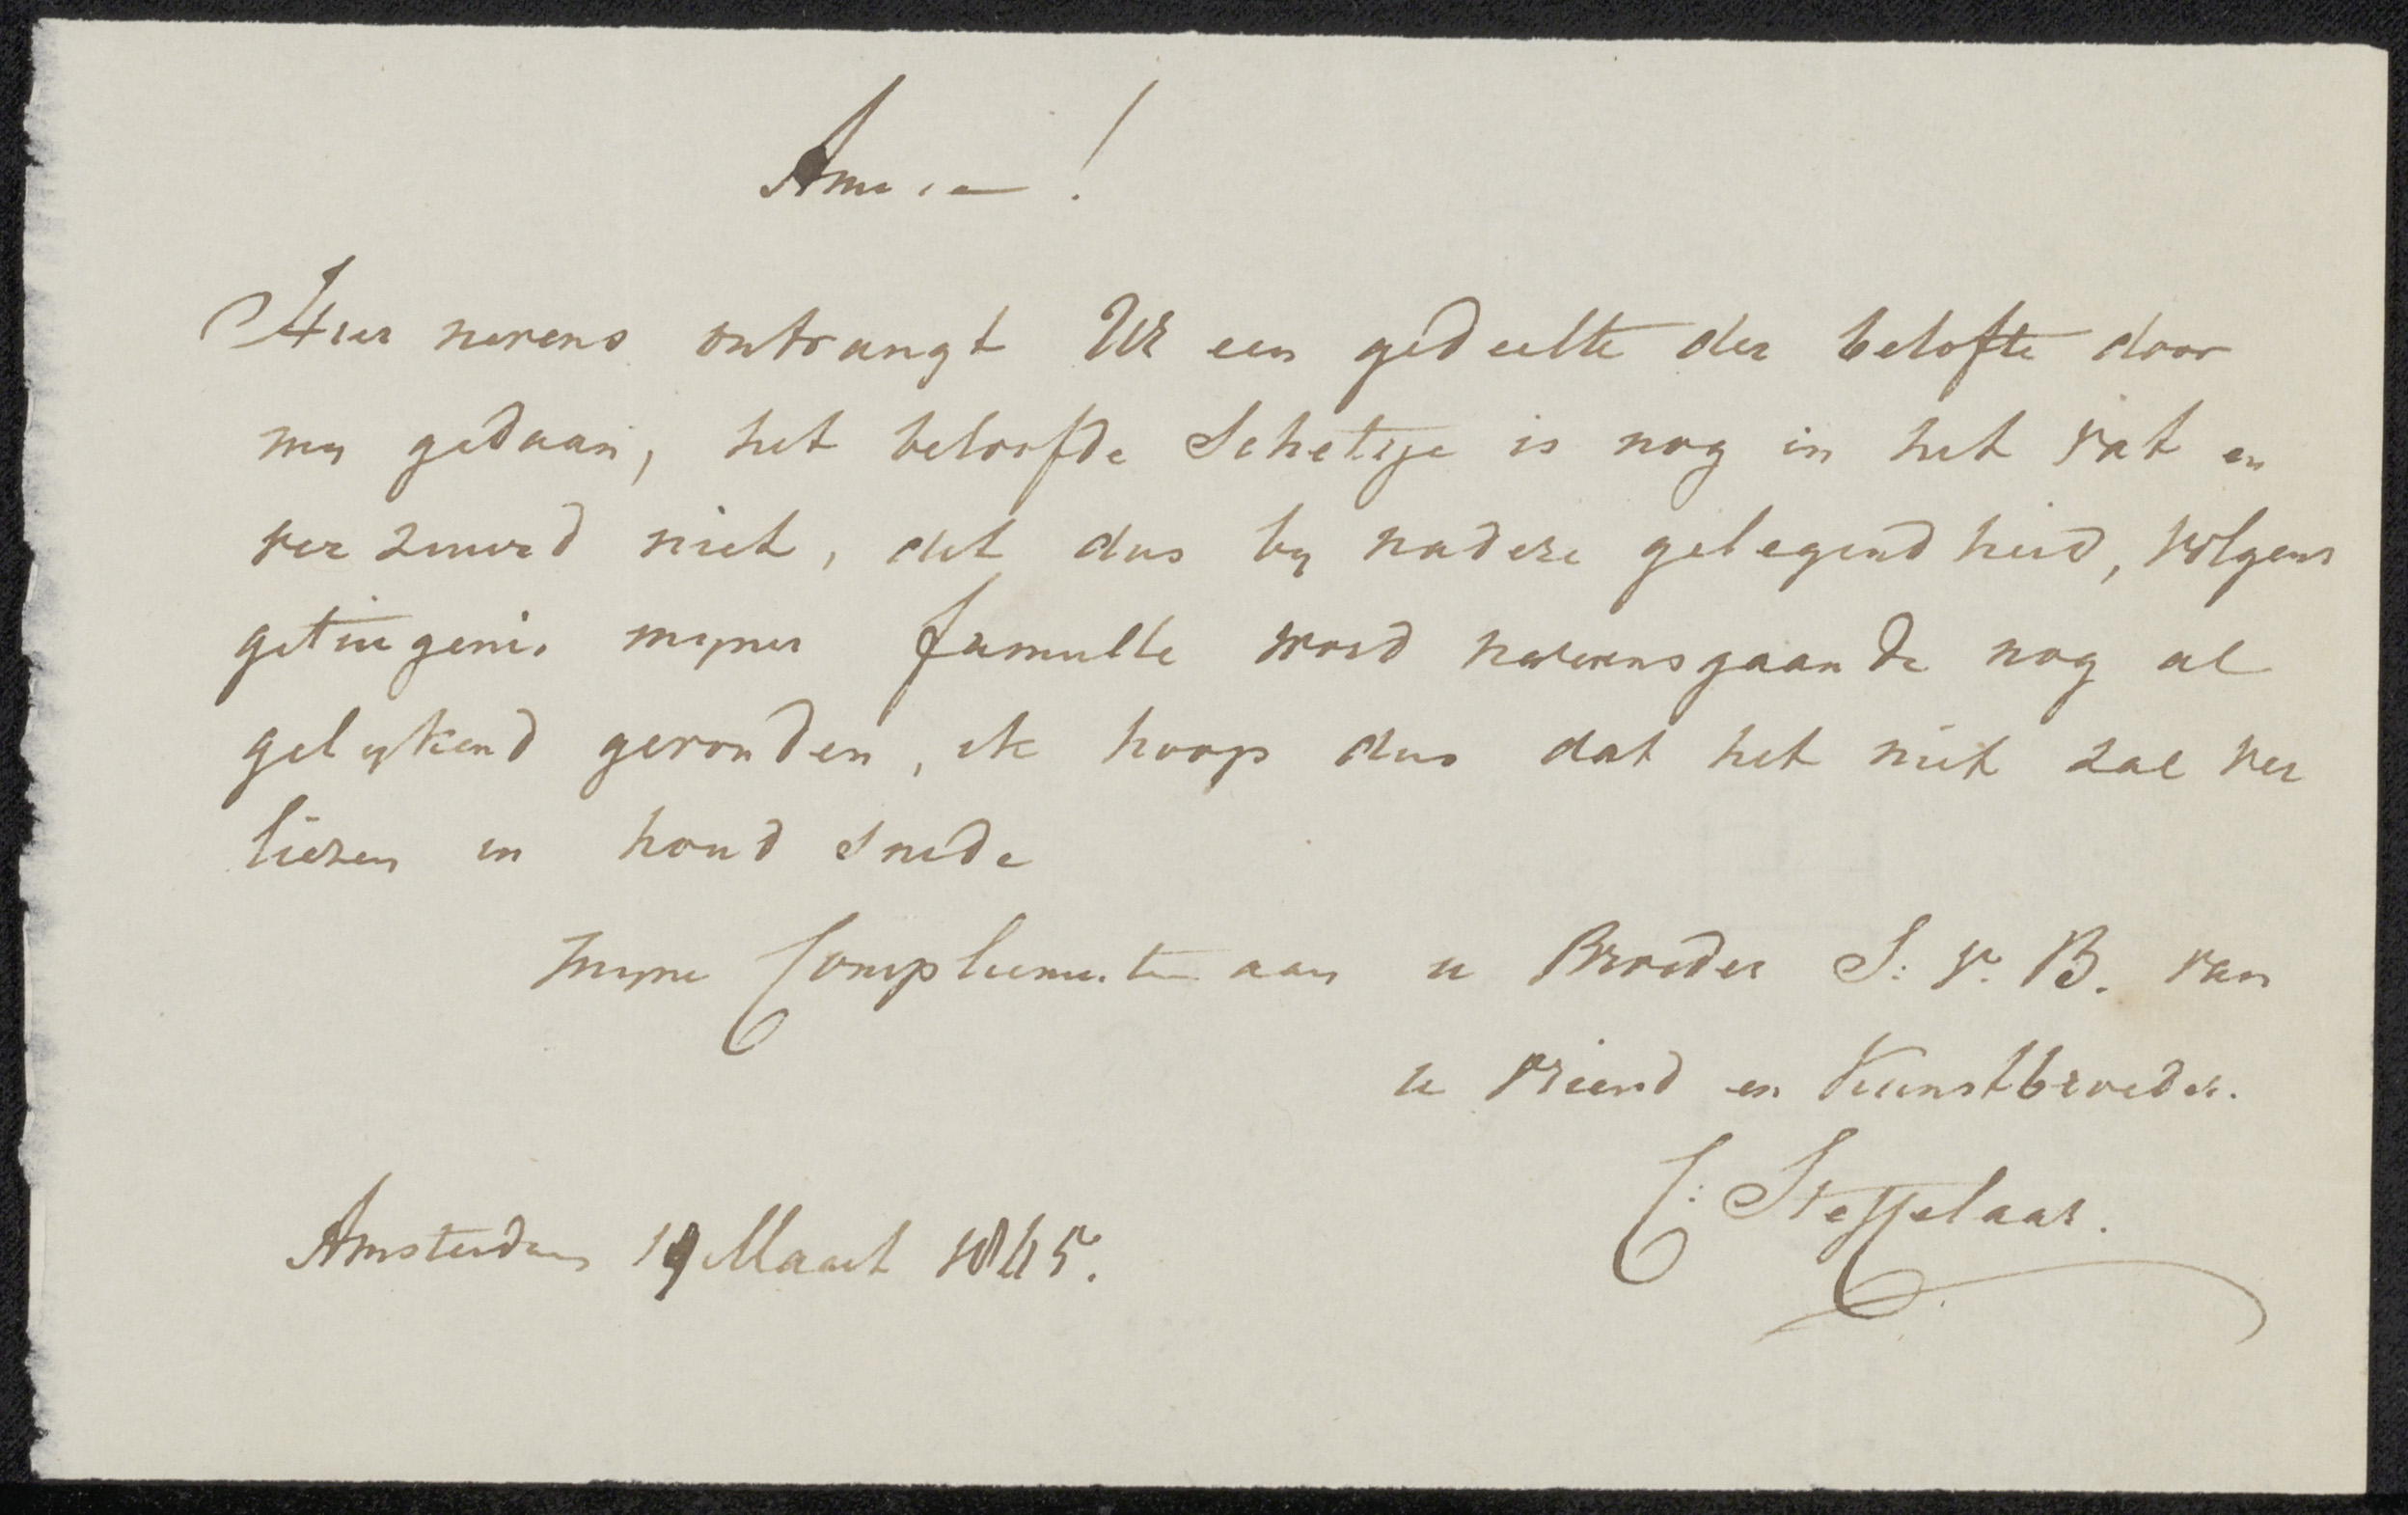 Amice!
Hier nevens ontvangt UE een gedeelte der belofte door
my gedaan, het beloofde Schetsje is nog in het vat en
ver zuurd niet, dit dus by nadere gelegend heid, volgens
getuigenis myner familte word nevensgaande nog al
gelykend gevonden, ik hoop dus dat het niet zal ver
liezen in houd snede
Myne Complimenten aan u Broeder S: V. B. van
u vriend en Kunstbroeder.
C: Steffelaar.
Amsterdam 19 Maart 1845.